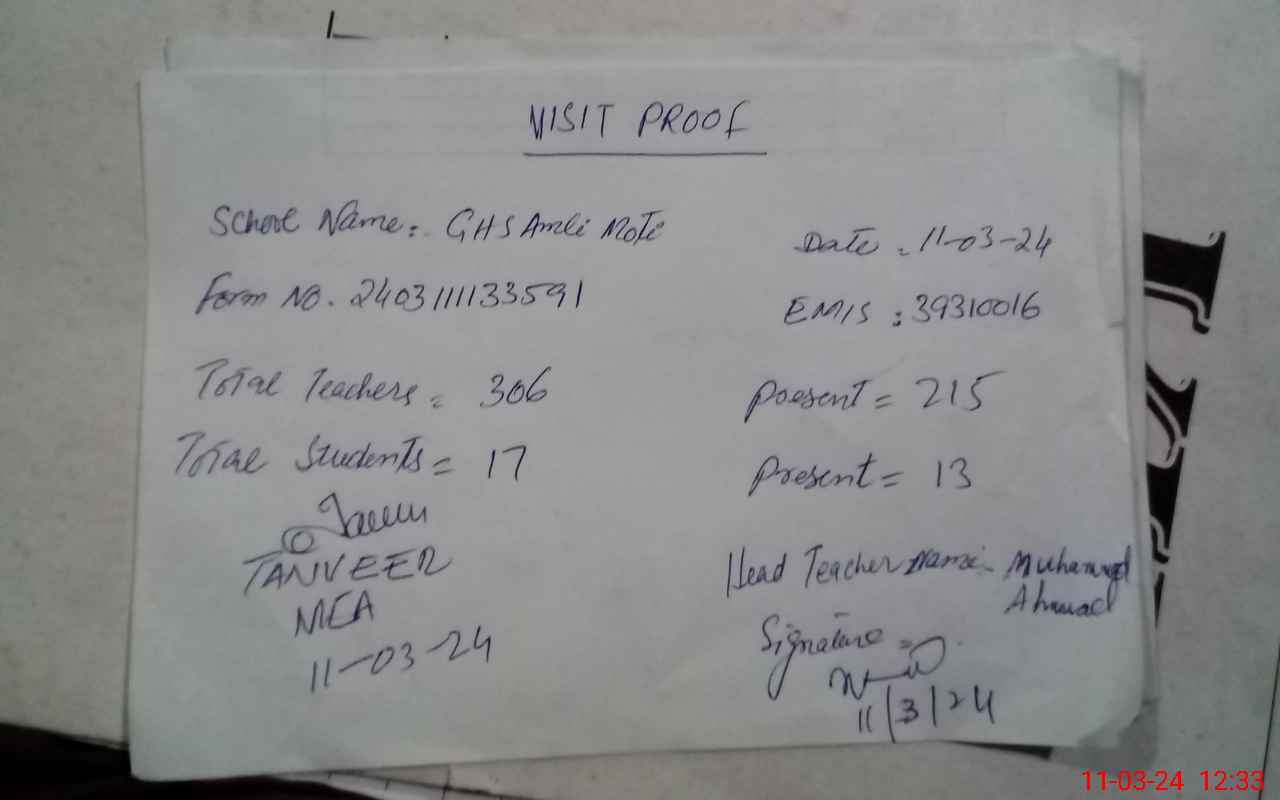 VISIT PROOF
School Name: GHS Amli Moti
Date: 11-03-24
Form No. 2403111133591
EMIS: 39310016
Total Teachers = 306
Present = 215
Total Students = 17
Present = 13
TANVEER
MEA
11-03-24
Head Teacher Name: Muhammad
Ahmad
Signature =
11/3/24
11-03-24 12:33